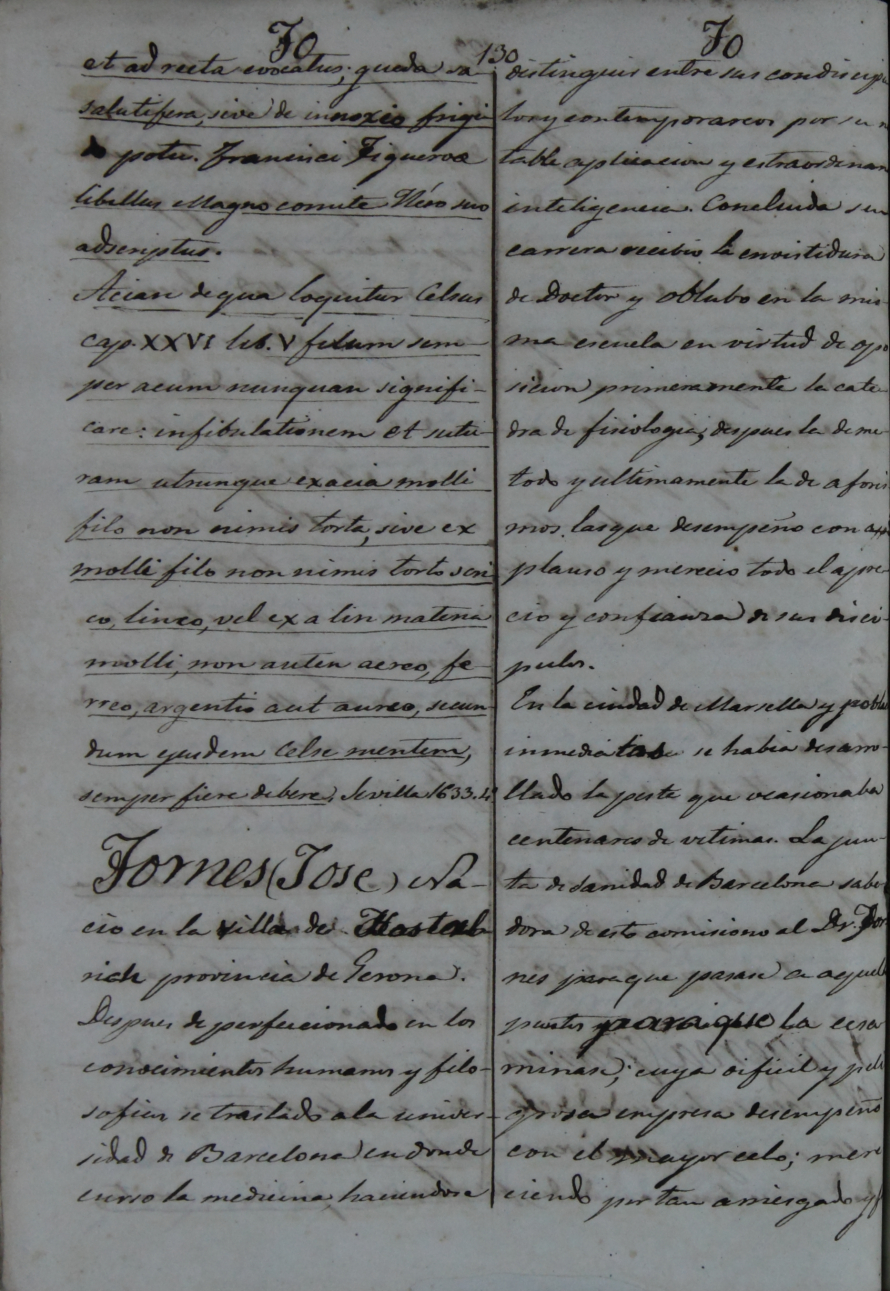 Fo
130
Fo
et ad recta evocatus; queda va
salutifera, sive de innoxio frigi
potu. Francisci Figueroæ
libellus Magno comite Nero suo
adscriptus.
Aciam de qua loquitur Celsus
Cap. XXVI lib. V filum sem-
per acum nunquan signifi-
care: infibulationem et sutu-
ram utrunque ex acia molli
filo non nimis torta, sive ex
molli filo non nimis torto seri
co, lineo, vel ex alin materia
molli, non auten aereo, fe-
rreo, argentio aut aureo, secun
dum ejusdem Celse mentem,
semper fiere debere, Sevilla 1633. 4º
Fornes (Jose) Na-
cio en la villa de Hostal
rich provincia de Gerona.
Despues de perfeccionado en los
conocimientos humanos y filo-
soficos se traslado a la univer-
sidad de Barcelona en donde
curso la medicina, haciendose
distinguir entre sus condiscipu
los y contemporaneos por su n
table aplicacion y estraordinar
inteligencia. Concluida su
carrera recibio la envistidura
de Doctor y obtubo en la mis
ma escuela en virtud de opo
sicion primeramente la cate
dra de fisiologia, despues la de me-
todo y ultimamente la de aforis
mos, las que desempeño con ap
plauso y merecio todo el apre
cio y confianza de sus disci-
pulos.
En la ciudad de Marsella y pobla
inmediatas se habia desarro-
llado la peste que ocasionaba
centenares de vitimas. La jun-
ta de sanidad de Barcelona sabe
dora de esto comisiono al Dr. For
nes para que pasase a aquell
puntos para que la ecsa
minase; cuya dificil y peli
grosa empresa desempeño
con el mayor celo; mere
ciendo por tan arriesgado y